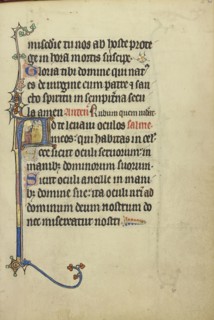 misedie tu nos ab hoste prote
ge in hora mortis suscipe.
Gloria tibi domine qui nat'
es de virgine cum patre & san
cto spiritu in sempiterna secu
la amen. Rubum quem uiderat
Ad te levavi oculos
meos: qui habitas in cel'
Ecce sicut oculi seruorum: in
manib; dominorum suorum.
Sicut oculi ancille in mani
b; domine sue: ita oculi nri ad
dominum deum nostrum do
nec misereatur nostri